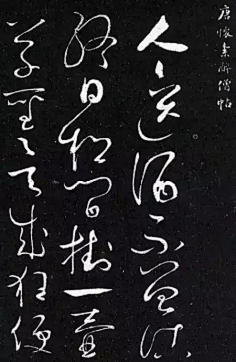 唐懷素醉僧帖
人人送酒不曾沽
終日松間掛一壺
草聖欲成狂便